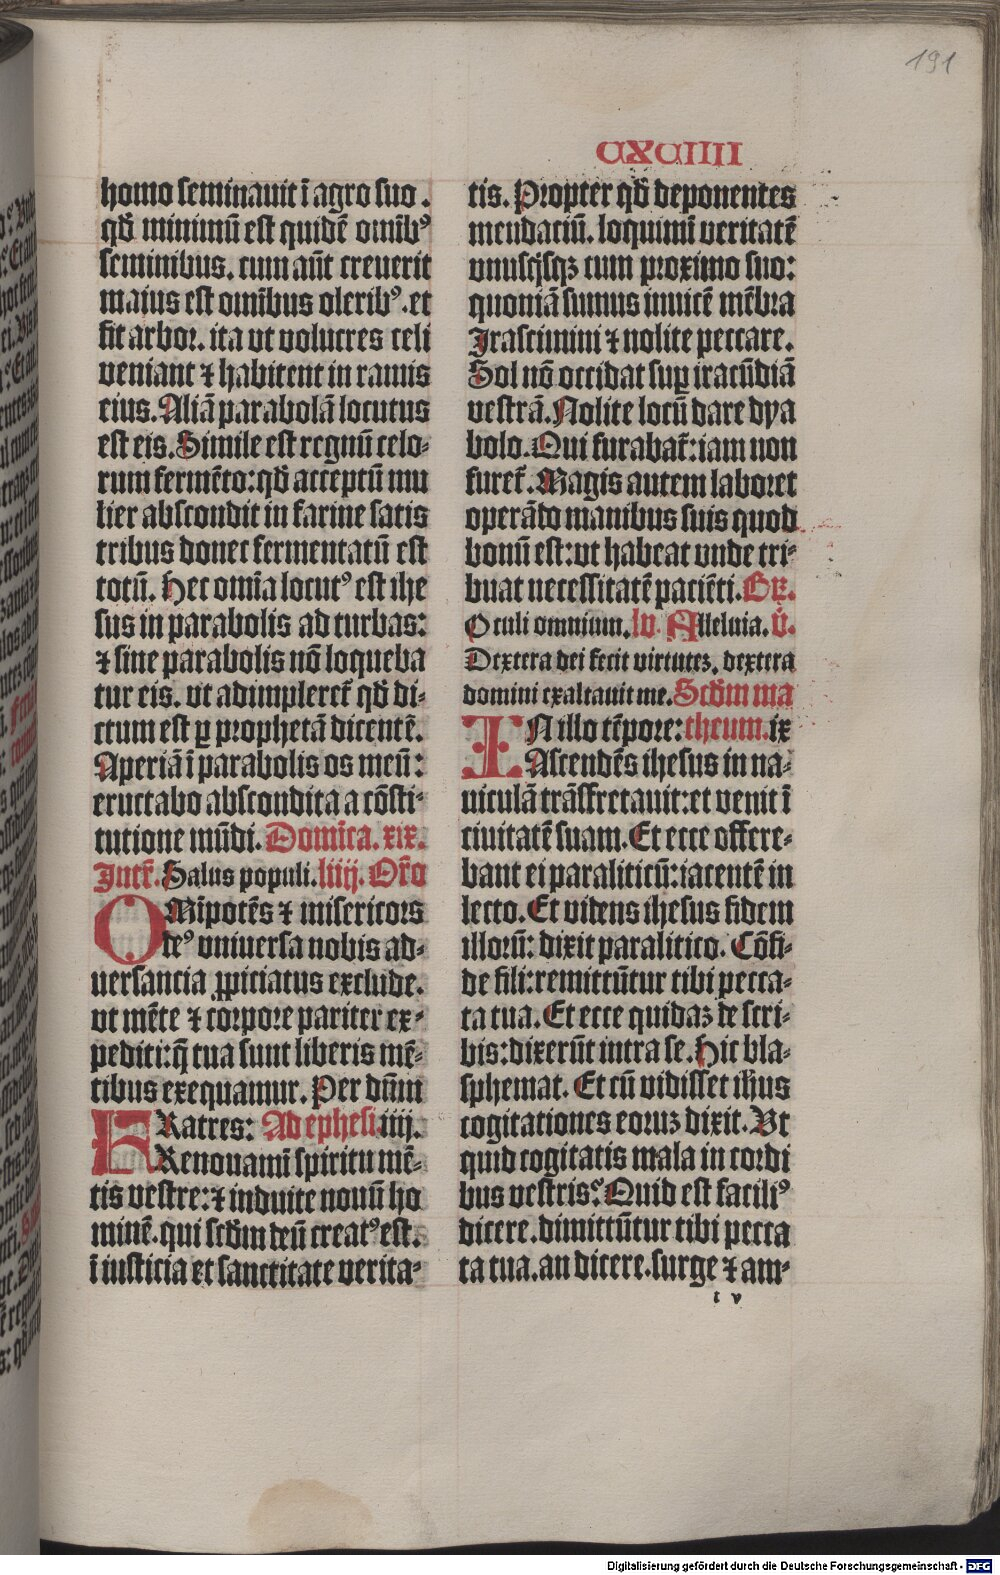 191
CXCIIII
homo seminauit ī agro suo .
qd̄ minimū est quidē omībꝰ
seminibus. cum aūt creuerit
maius est omībus oleribꝰ .et
fit arbor. ita vt volucres celi
veniant ⁊ habitent in ramis
eius. Aliā parabolā locutus
est eis. Simile est regnū celo⸗
rum fermēto: qd̄ acceptū mu
lier abscondit in farine satis
tribus donec fermentatū est
totū. Hec omīa locutꝰ est ihe
sus in parabolis ad turbas:
⁊ sine parabolis nō loqueba
tur eis. vt adimpleret̄ qd̄ di⸗
ctum est ꝑ prophetā dicentē.
Aperiā ī parabolis os meū:
eructabo abscondita a cōsti⸗
tutione mūdi. Domīca. xix.
Intr̄. Salus populi. liiij. Or̄o
OMīpotēs ⁊ misericors
deꝰ vniuersa nobis ad⸗
uersancia ꝓpiciatus exclude.
vt mēte ⁊ corpore pariter ex⸗
pediti: q̄ tua sunt liberis mē⸗
tibus exequamur. Per dn̄m
FRatres: Ad ephesi iiij.
Renouamī spiritu mē⸗
tis vestre: ⁊ induite nouū ho
minē. qui scd̄m deū creatꝰ est.
ī iusticia et sanctitate verita⸗
tis. Propter qd̄ deponentes
mendaciū. loquimī veritatē
vnusq̄sqꝫ cum proximo suo:
quoniā sumus inuicē mēbra
Irascimini ⁊ nolite peccare.
Sol nō occidat suꝑ iracūdiā
vestrā. Nolite locū dare dya
bolo. Qui furabat̄: iam non
furet̄. Magis autem laboret
operādo manibus suis quod
bonū est: vt habeat vnde tri⸗
buat necessitatē paciēti. Gr̄.
Oculi omnium. lv. Alleluia. v̄.
Dextera dei fecit virtuteꝫ. dextera
domini exaltauit me. Scd̄m ma
IN illo tēpore: theum. ix
Ascendēs ihesus in na⸗
uiculā trāsfretauit: et venit ī
ciuitatē suam. Et ecce offere⸗
bant ei paraliticū: iacentē in
lecto. Et videns ihesus fidem
illorū: dixit paralitico. Cōfi⸗
de fili: remittūtur tibi pecca⸗
ta tua. Et ecce quidaꝫ de scri⸗
bis: dixerūt intra se. Hic bla⸗
sphemat. Et cū vidisset ih̄us
cogitationes eoruꝫ dixit. Vt
quid cogitatis mala in cordi
bus vestris? Quid est faciliꝰ
dicere. dimittūtur tibi pecca
ta tua. an dicere. surge ⁊ am⸗
ı v
Digitalisierung gefördert durch die Deutsche Forschungsgemeinschaft - DFG